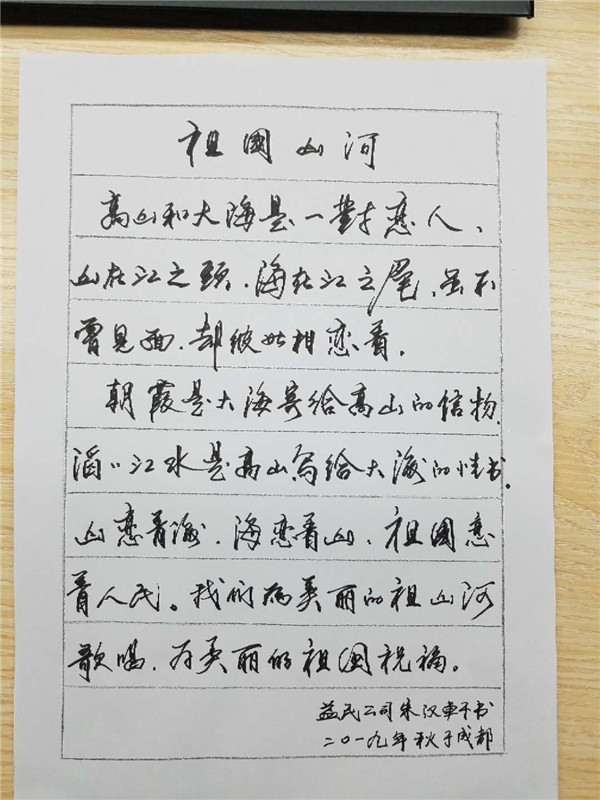 祖國山河
高山和大海是一對恋人、
山在江之頭、海在江之尾、虽不
曾見面、却彼此相恋着。
朝霞是大海寄给高山的信物、
滔〻江水是高山写给大海的情书。
山恋着海、海恋着山、祖國恋
着人民。我们为美丽的祖山河
歌唱、为美丽的祖國祝福。
益民公司朱汉
二〇一九年秋于成都